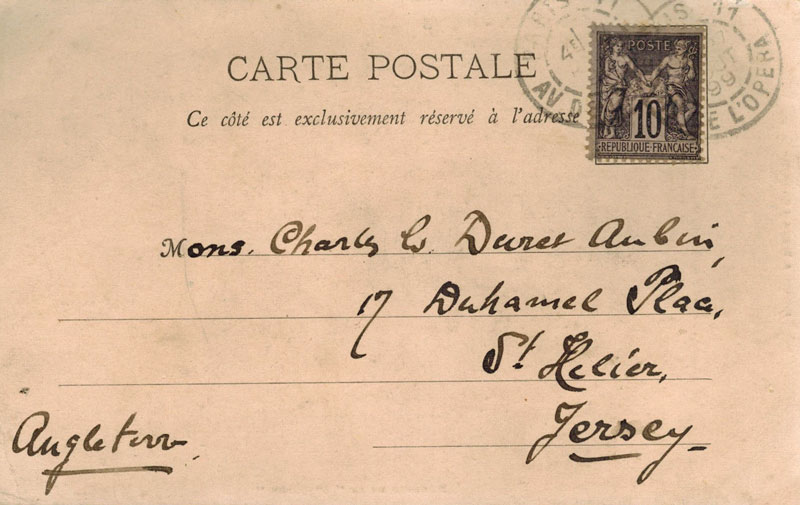 CARTE POSTALE
Ce côté est exclusivement réservé à l'adresse
POSTE
10
REPUBLIQUE FRANÇAISE
AV DE L'OPERA
Mons. Charles W Duret Aubin,
17 Duhamel Place,
St Helier,
Jersey
Angleterre